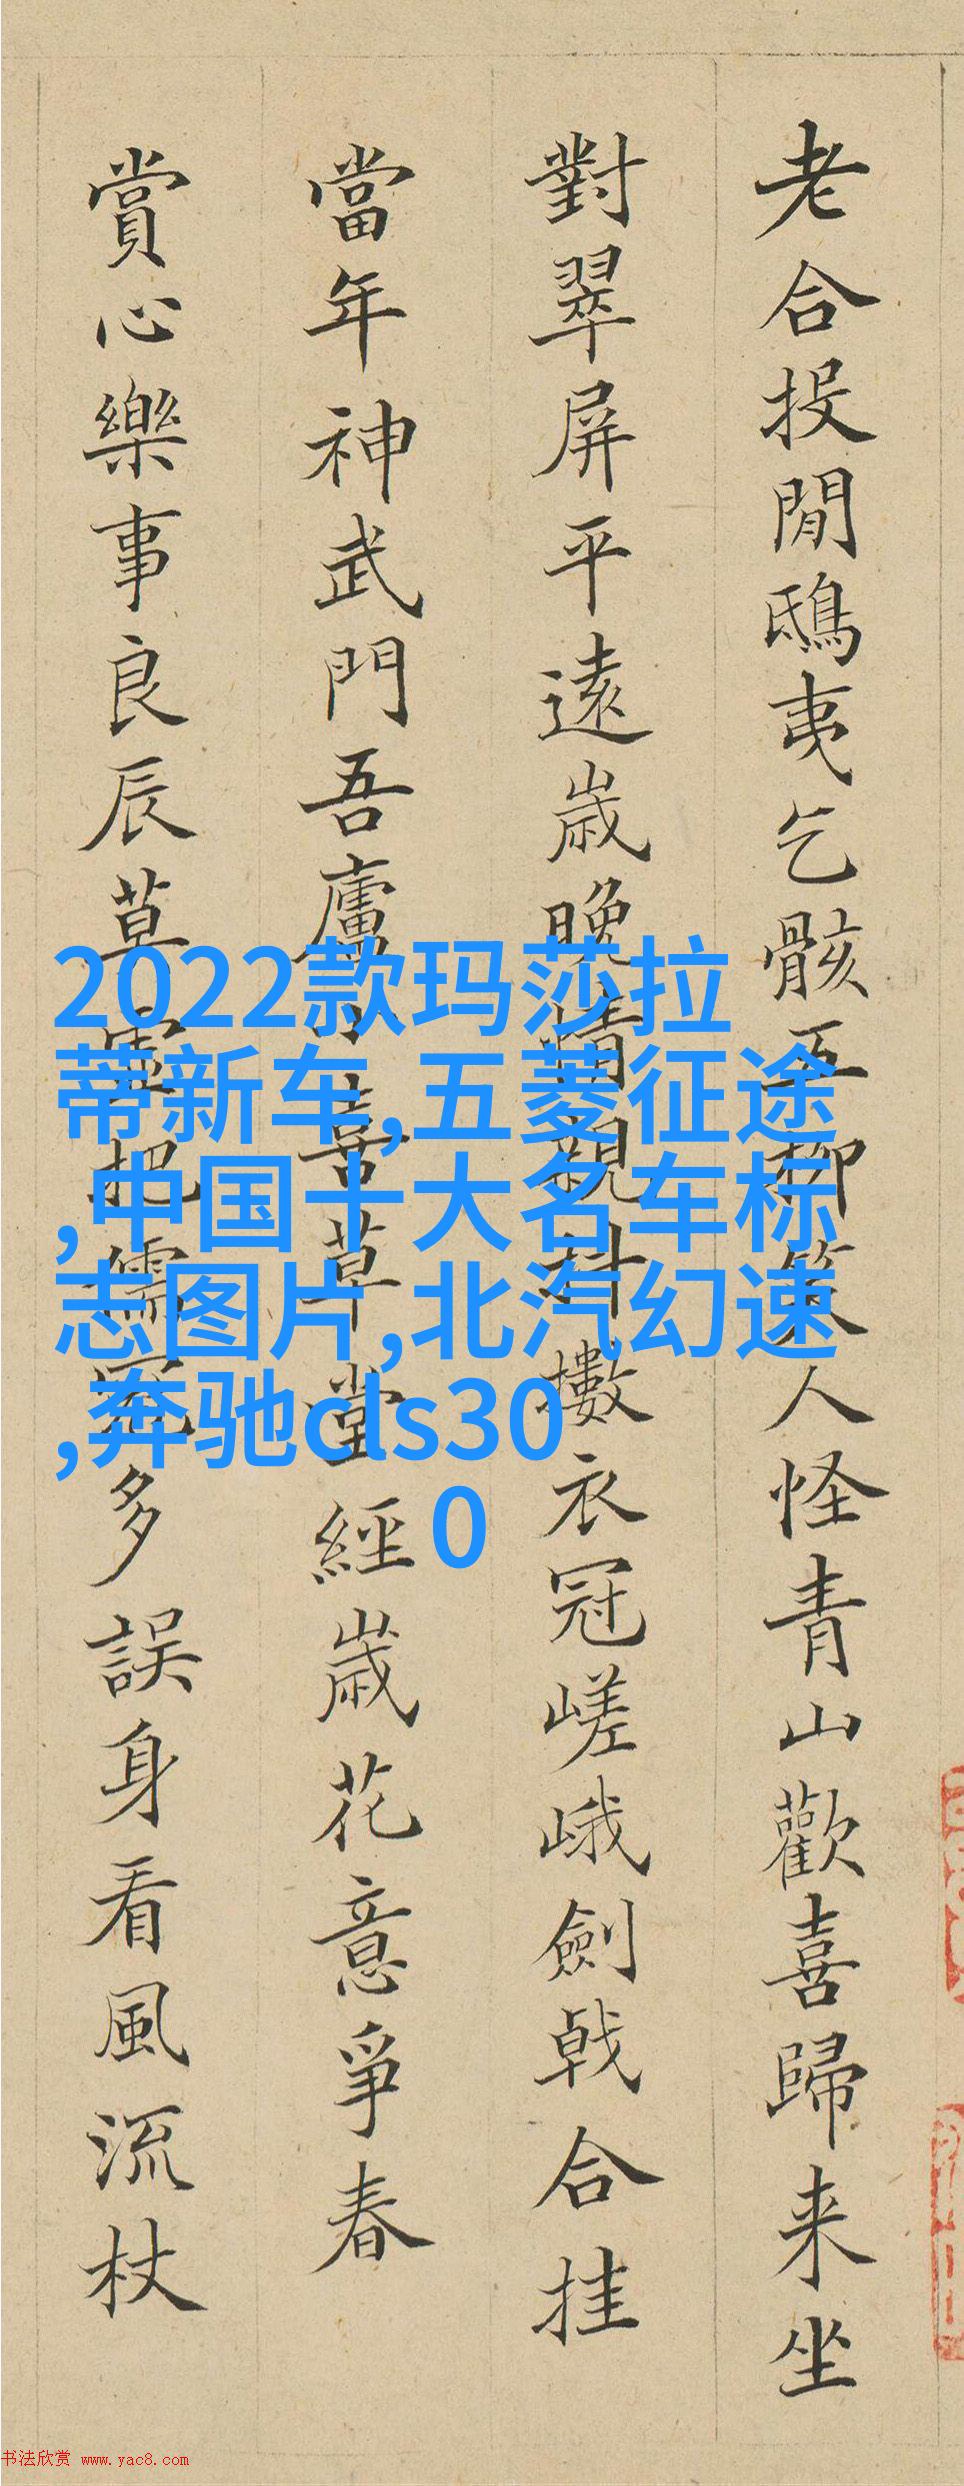 老合投閒鴟夷乞骸五柳笑人怪青山歡喜歸来坐
對翠屏平遠歲晚情親抖擻衣冠嵯峨劍戟合挂
當年神武門吾廬小喜草堂經歲花意爭春
賞心樂事良辰莫虛把儒冠多誤身看風流杖
2022款玛莎拉
蒂新车,五菱征途
,中国十大名车标
志图片,北汽幻速
,奔驰cls30
0
书法欣赏 www.yac8.com